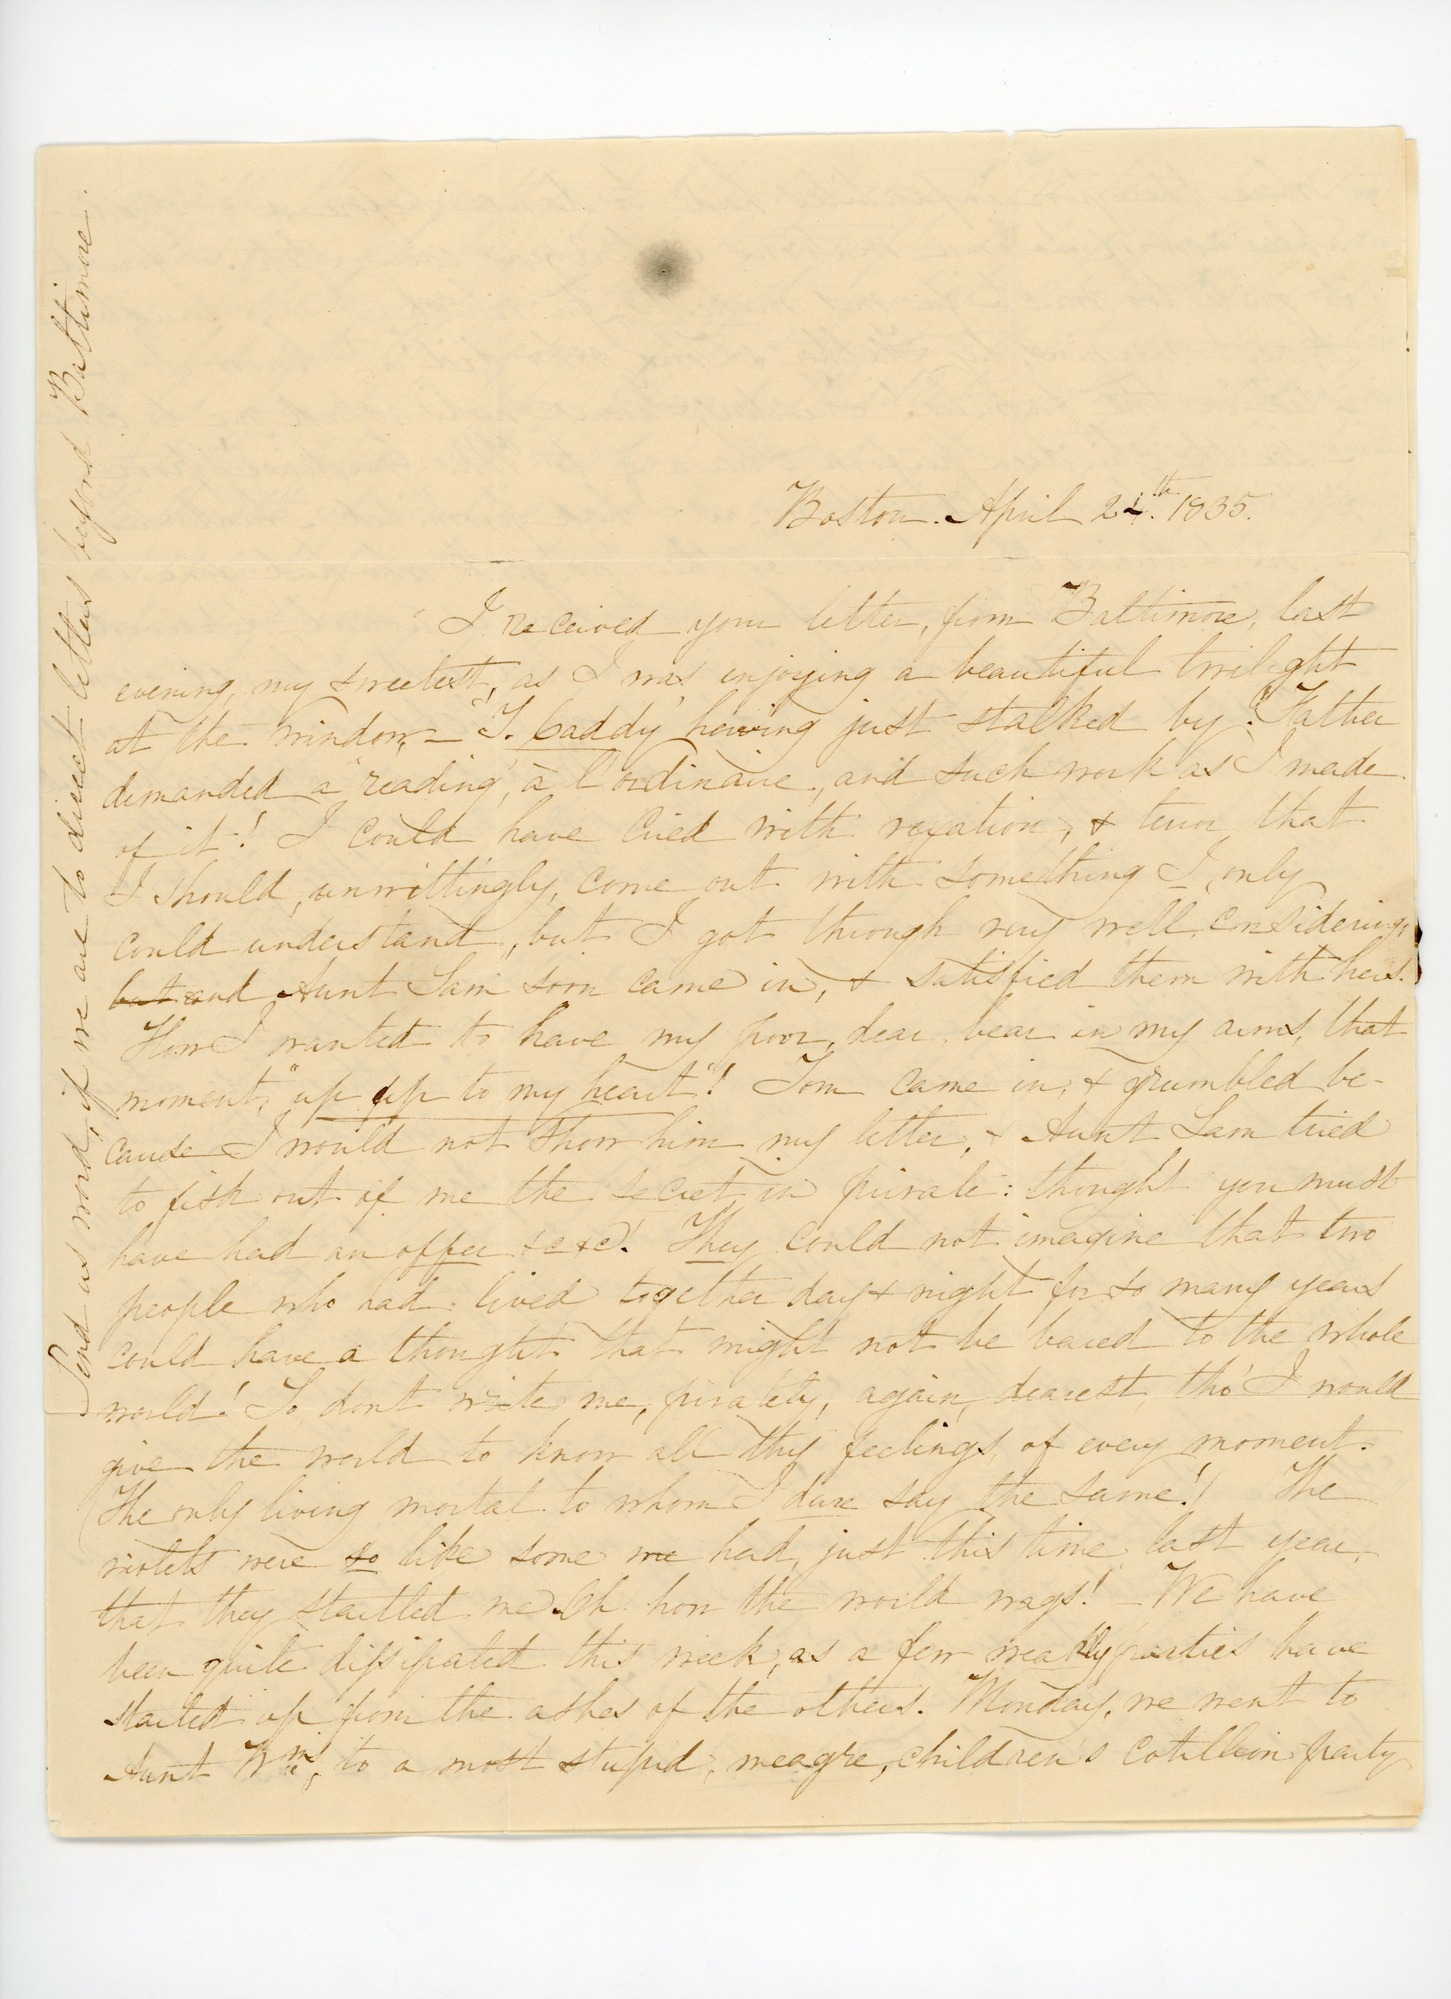 Boston. April 24th. 1835.
I received your letter, from Baltimore, last
evening, my sweetest, as I was enjoying a beautiful twilight
at the window, – "T. Caddy" having just stalked by. Father
demanded a "reading", à l'ordinaire, and such work as I made
of it! I could have cried with vexation, & terror that
I should, unwittingly, come out with something I, only
could understand, but I got through very well, considering,
but and Aunt Sam soon came in, & satisfied them with hers.
How I wanted to have my poor, dear, bear in my arms, that
moment, "up up to my heart"! Tom came in, & grumbled be-
cause I would not show him my letter, & Aunt Sam tried
to fish out of me the secret, in private: thought you must
have had an offer &c &c! They could not imagine that two
people who had lived together day & night for so many years
could have a thought that might not be bared to the whole
world! So dont write me, privately, again, dearest, tho' I would
give the world to know all thy feelings, of every moment.
(The only living mortal to whom I dare say the same!) The
violets were so like some we had, just this time, last year,
that they startled me. Oh how the world wags! – We have
been quite dissipated this week, as a few weakly parties have
started up from the ashes of the others. Monday, we went to
Aunt Wm's, to a most stupid, meagre, children's cotillion party
Send us word, if we are to direct letters beyond Baltimore.